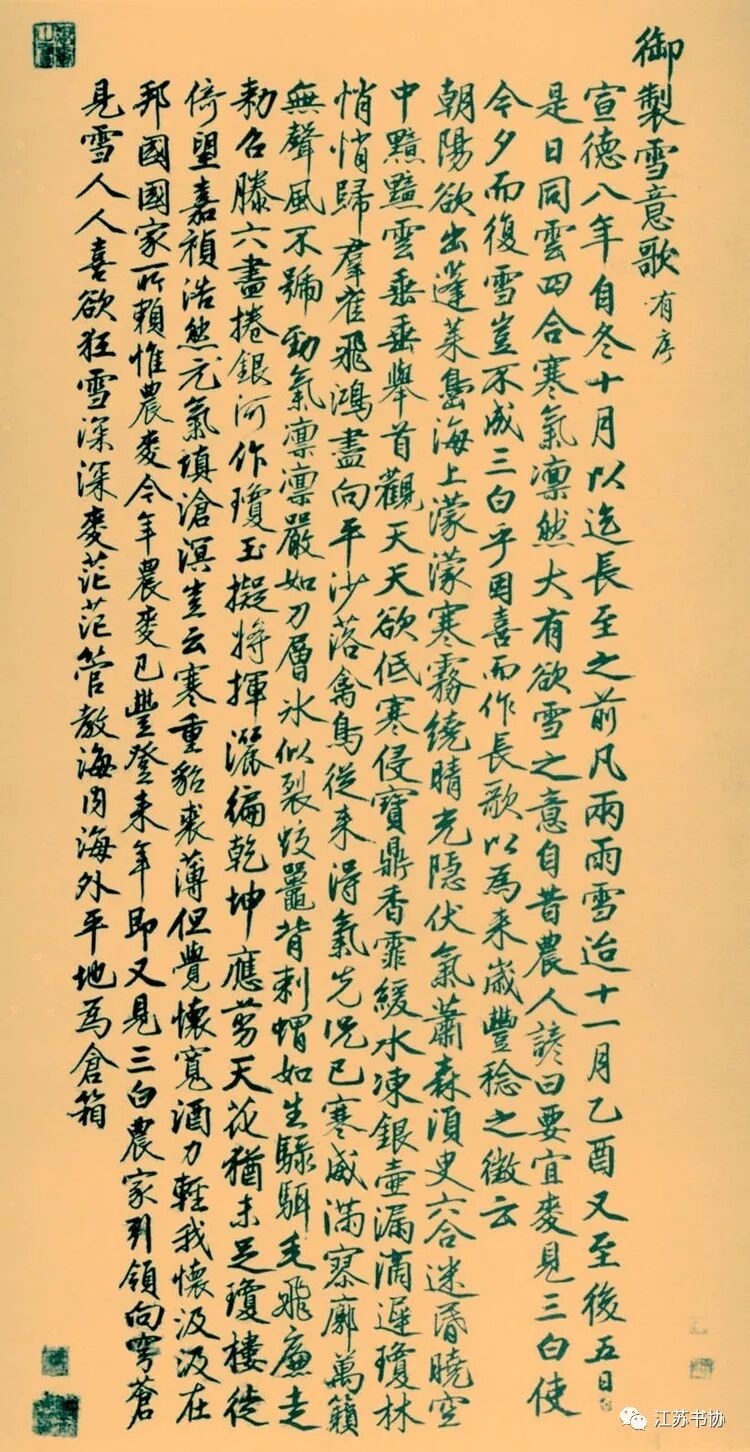 御製雪意歌 有序
宣德八年自冬十月以迄長至之前凡兩雨雪迨十一月乙酉又至後五日也
是日同雲四合寒氣凛然大有欲雪之意自昔農人諺曰要宜麥見三白使
今夕而復雪豈不成三白乎因喜而作長歌以為来歲豐稔之徵云
朝陽欲出蓬萊島海上濛濛寒霧繞晴光隱伏氣蕭森須臾六合迷昏曉空
中黯黯雲垂垂舉首觀天天欲低寒侵寶鼎香霏緩水凍銀壺漏滴遲瓊林
悄悄歸羣雀飛鴻盡向平沙落禽鳥從来得氣先況已寒威滿寥廓萬籟
無聲風不號勁氣凛凛嚴如刀層冰似裂蛟鼉背刺蝟如生騄駬毛飛廉走
勑召滕六盡捲銀河作瓊玉擬將揮灑徧乾坤應剪天花猶未足瓊樓徙
倚望嘉禎浩然元氣填滄溟豈云寒重貂裘薄但覺懷寬酒力輕我懷汲汲在
邦國國家所賴惟農麥今年農麥已豐登来年即又見三白農家引領向穹蒼
見雪人人喜欲狂雪深深麥茫茫管教海内海外平地為倉箱
江苏书协